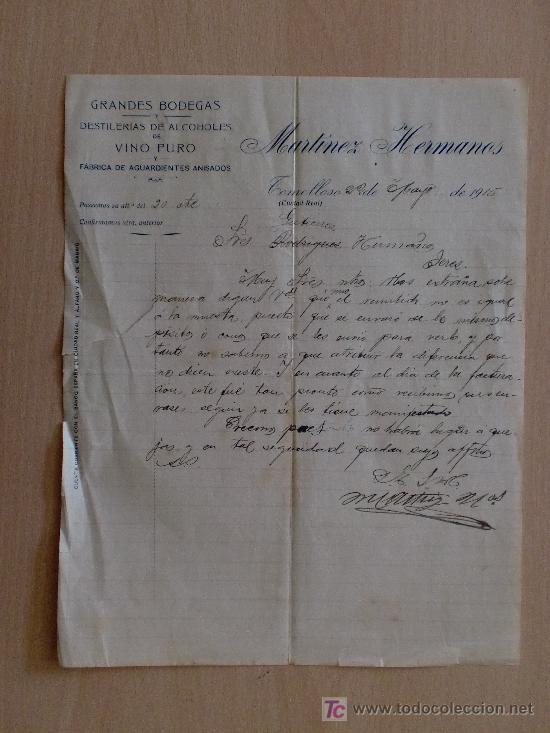 GRANDES BODEGAS
Y
DESTILERÍAS DE ALCOHOLES
DE
VINO PURO
Y
FÁBRICA DE AGUARDIENTES ANISADOS
Martínez Hermanos
Tomelloso 22 de Mayo de 1915
(Ciudad Real)
Poseemos su att.ª del 20 cte
Confirmamos ntra. anterior
CUENTA CORRIENTE CON EL BANCO ESPAÑA DE CIUDAD REAL Y ALFARO Y C.ª DE MADRID
Gutierrez
Sres Rodriguez Hermanos
Jerez
Muy Sres ntro. Nos extraña sobre
manera digan Vds que el remitido no es igual
a la muestra, puesto que se envasó de lo mismo de-
posito o cono que se les envio para verlo, y por
tanto no sabemos a que atribuir la diferencia que
nos dicen existe. Y en cuanto al dia de la factura-
cion, este fué tan pronto como recibimos sus en-
vases segun ya se les tiene manifestado
Creemos pues no habra lugar a que-
jas, y en tal seguridad quedan suyos affmos
SS
Martinez Hos
todocoleccion
TC
www.todocoleccion.net